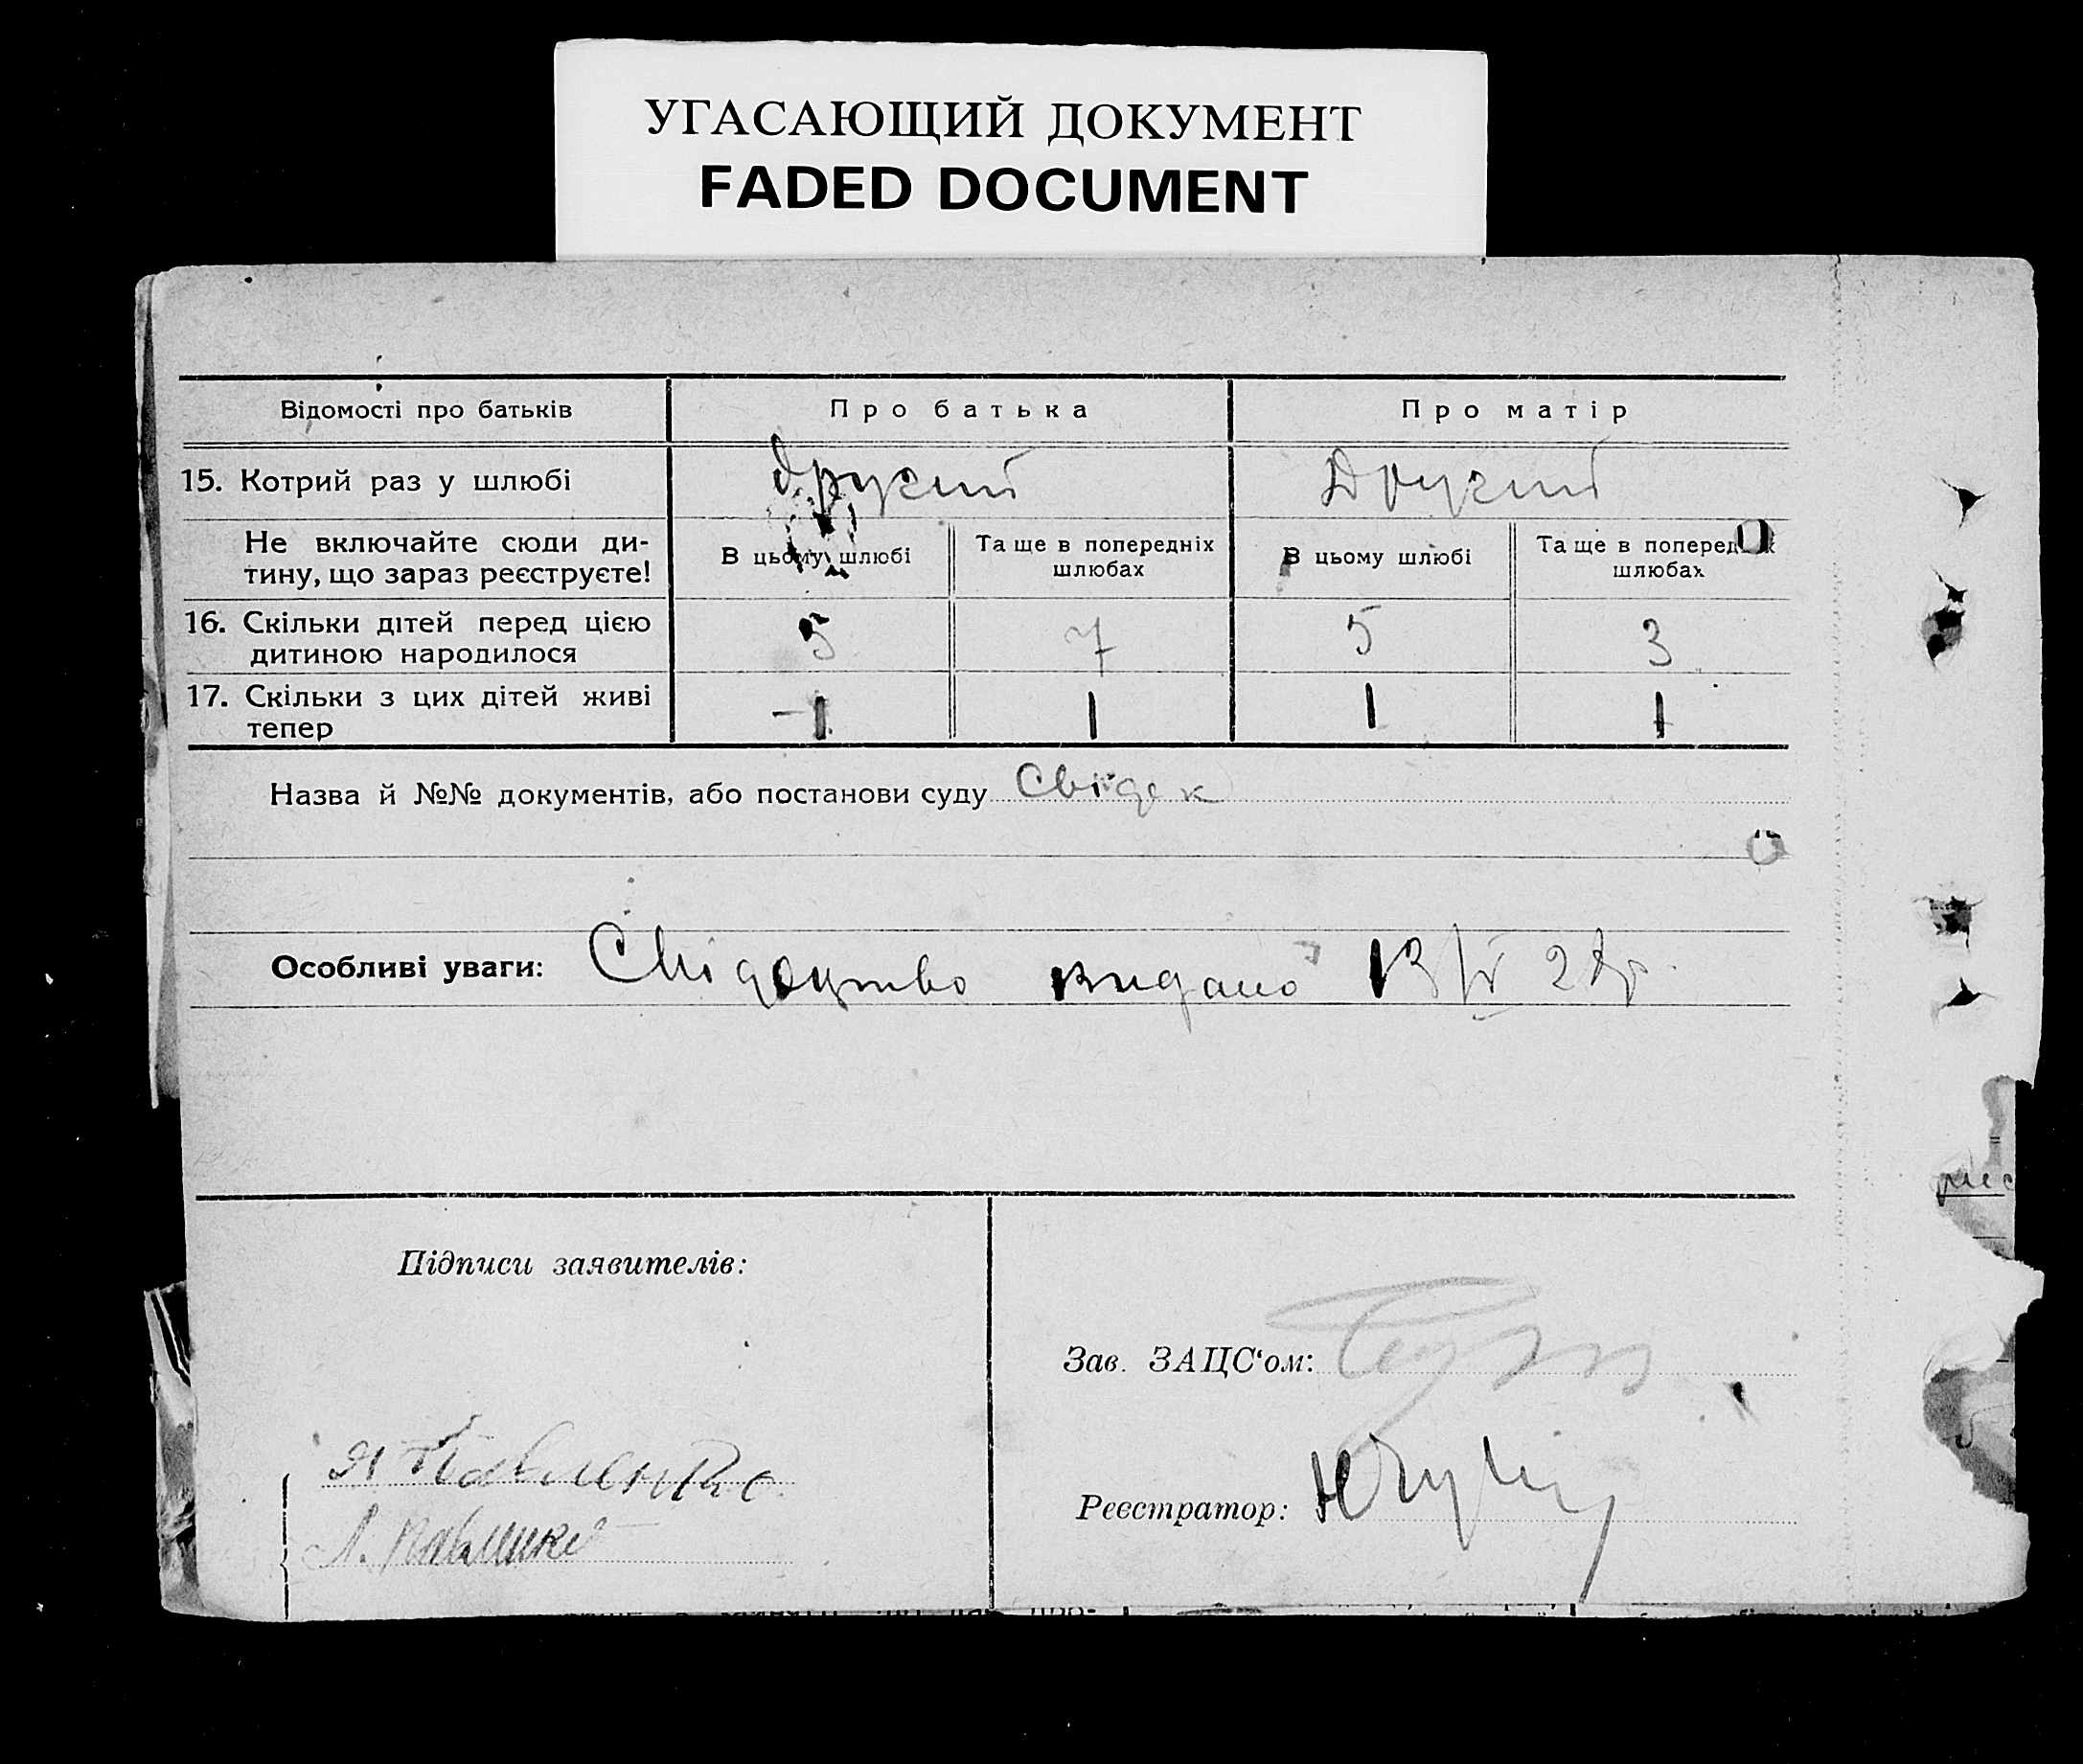 УГАСАЮЩИЙ ДОКУМЕНТ
FADED DOCUMENT
Відомості про батьків
Про батька
Про матір
15. Котрий раз у шлюбі
другий
Другий
Не включайте сюди ди-
тину, що зараз реєструєте!
В цьому шлюбі
Та ще в попередніх
шлюбах
В цьому шлюбі
Та ще в
шлюбах
16. Скільки дітей перед цією
дитиною народилося
5
7
5
3
17. Скільки з цих дітей живі
тепер
1
1
1
1
Назва й №№ документів, або постанови суду Свідок
Особливі уваги: Свідоцтво видано
Підписи заявителів:
Зав. ЗАЦС‘ом:
Я Павленко
Реєстратор:
Л.